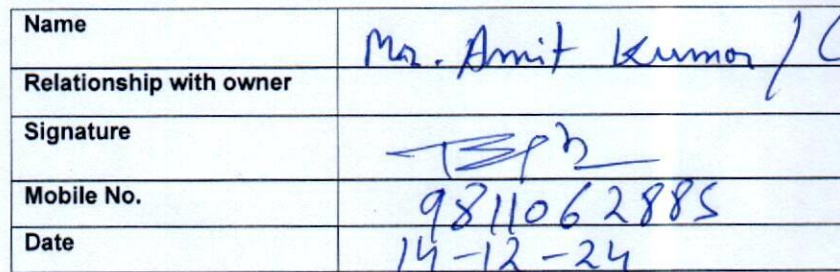 Name Mr. Amit Kumar / (
Relationship with owner
Signature
Mobile No. 9811062885
Date 14-12-24